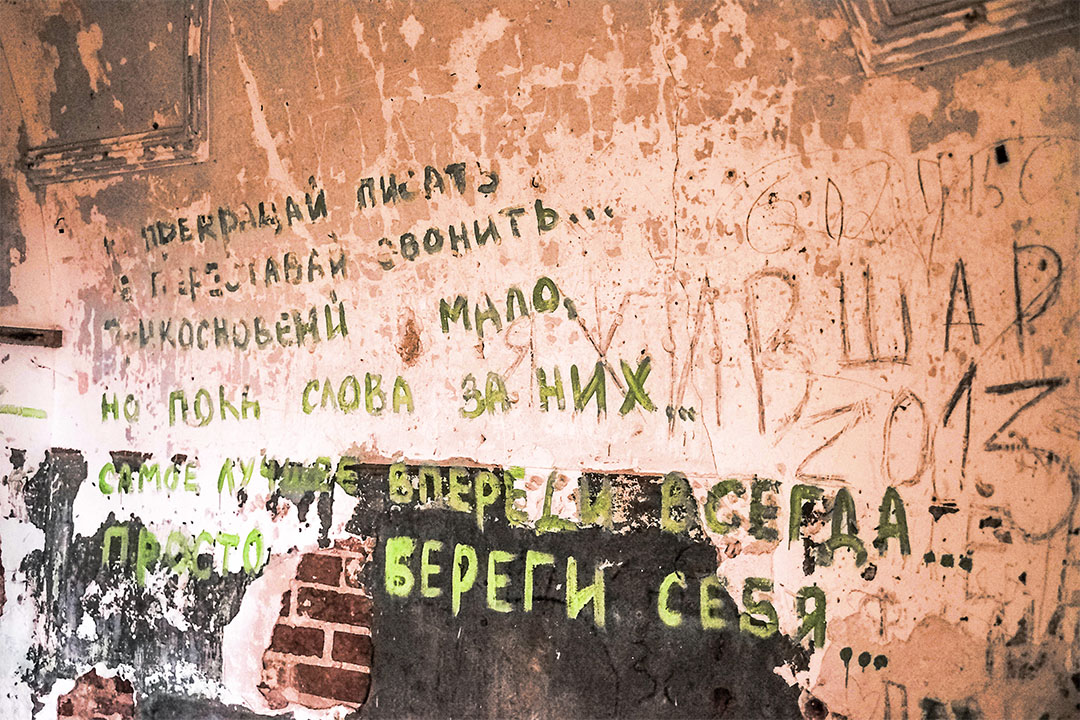 прекращай писать
переставай звонить...
прикосновений мало,
но пока слова за них...
самое лучшее впереди всегда...
просто береги себя...
ЯХИАВШАР
2013